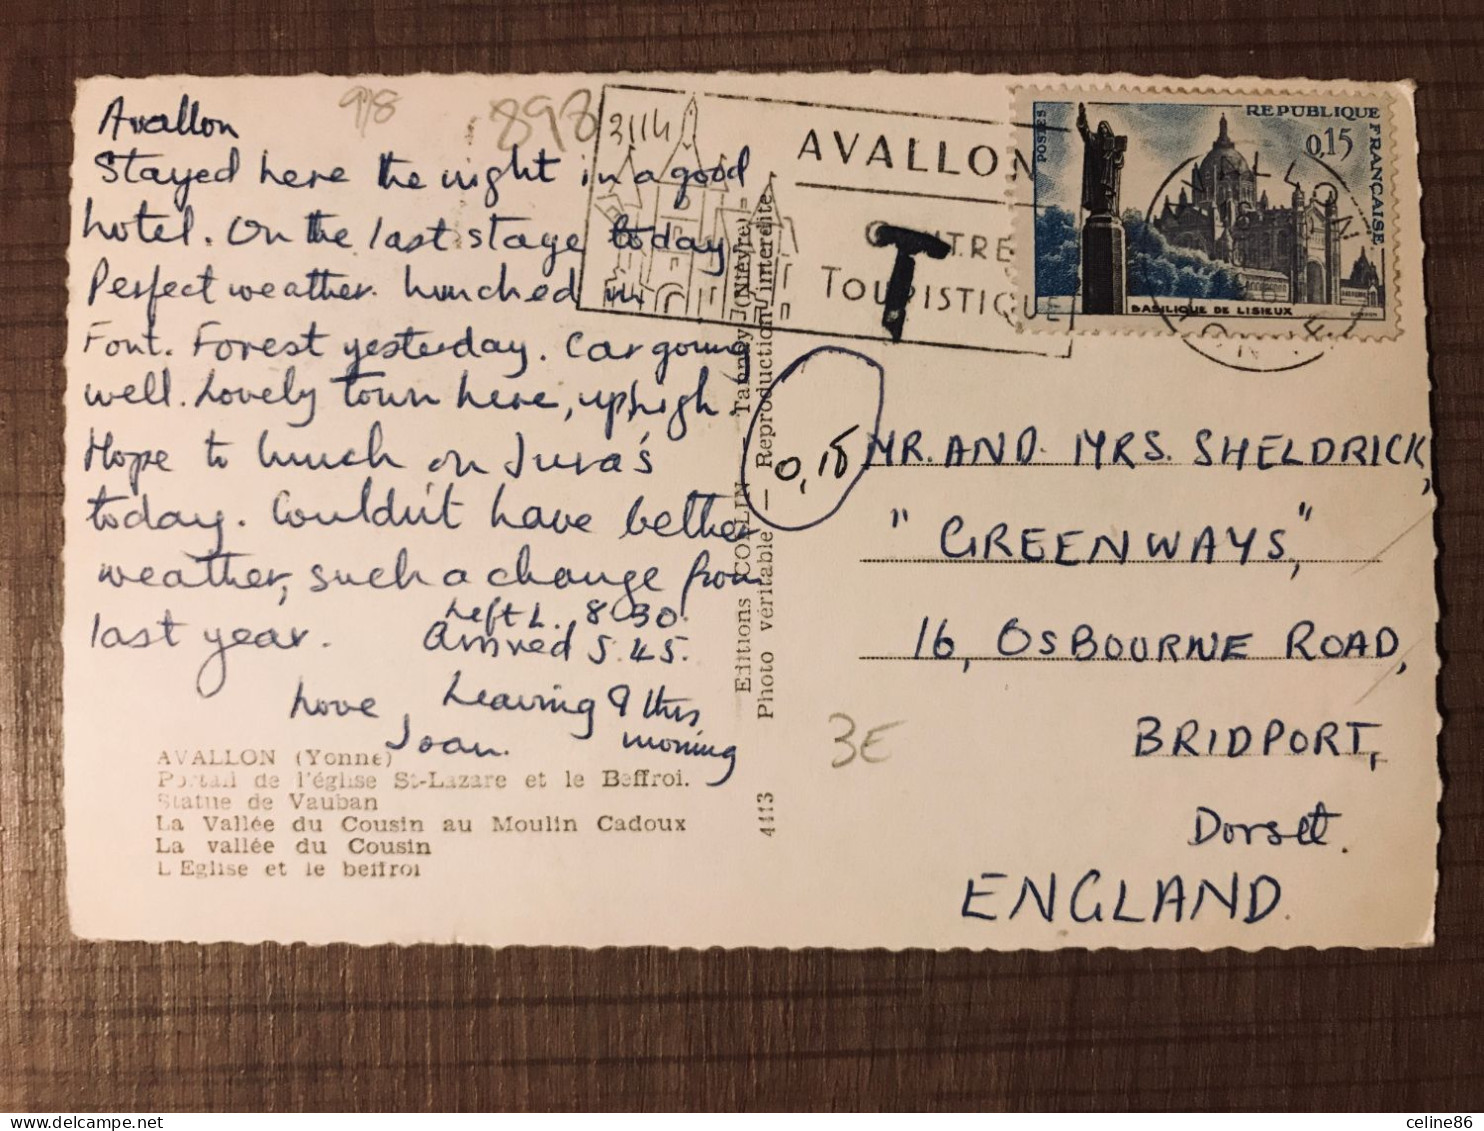 9/8
898
3114
Avallon
Stayed here the night in a good
hotel. On the last stage today
Perfect weather. Lunched in
Font. Forest yesterday. Car going
well. Lovely town here, up high.
Hope to lunch on Jura's
today. Couldn't have better
weather, such a change from
last year.
Left L. 8.30.
Arrived 5.45.
Leaving 9 this
morning
Love,
Joan.
AVALLON (Yonne)
Portail de l'église St-Lazare et le Beffroi.
Statue de Vauban
La Vallée du Cousin au Moulin Cadoux
La vallée du Cousin
L'Eglise et le beffroi
Editions COLLIN — Tannay (Nièvre)
Photo véritable — Reproduction interdite
4113
AVALLON
CENTRE
TOURISTIQUE
T
0,15
REPUBLIQUE FRANÇAISE
POSTES
0,15
BASILIQUE DE LISIEUX
AVALLON
YONNE
MR. AND. MRS. SHELDRICK,
"GREENWAYS,"
16, OSBOURNE ROAD,
BRIDPORT,
Dorset.
ENGLAND.
3E
delcampe.net
celine86